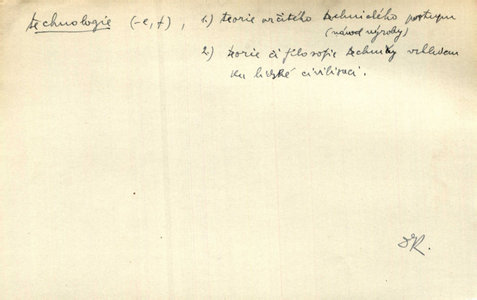 technologie (-e, f), 1) teorie určitého technického postupu
(návod výroby)
2) teorie či filosofie techniky vzhledem
ku lidské civilisaci.